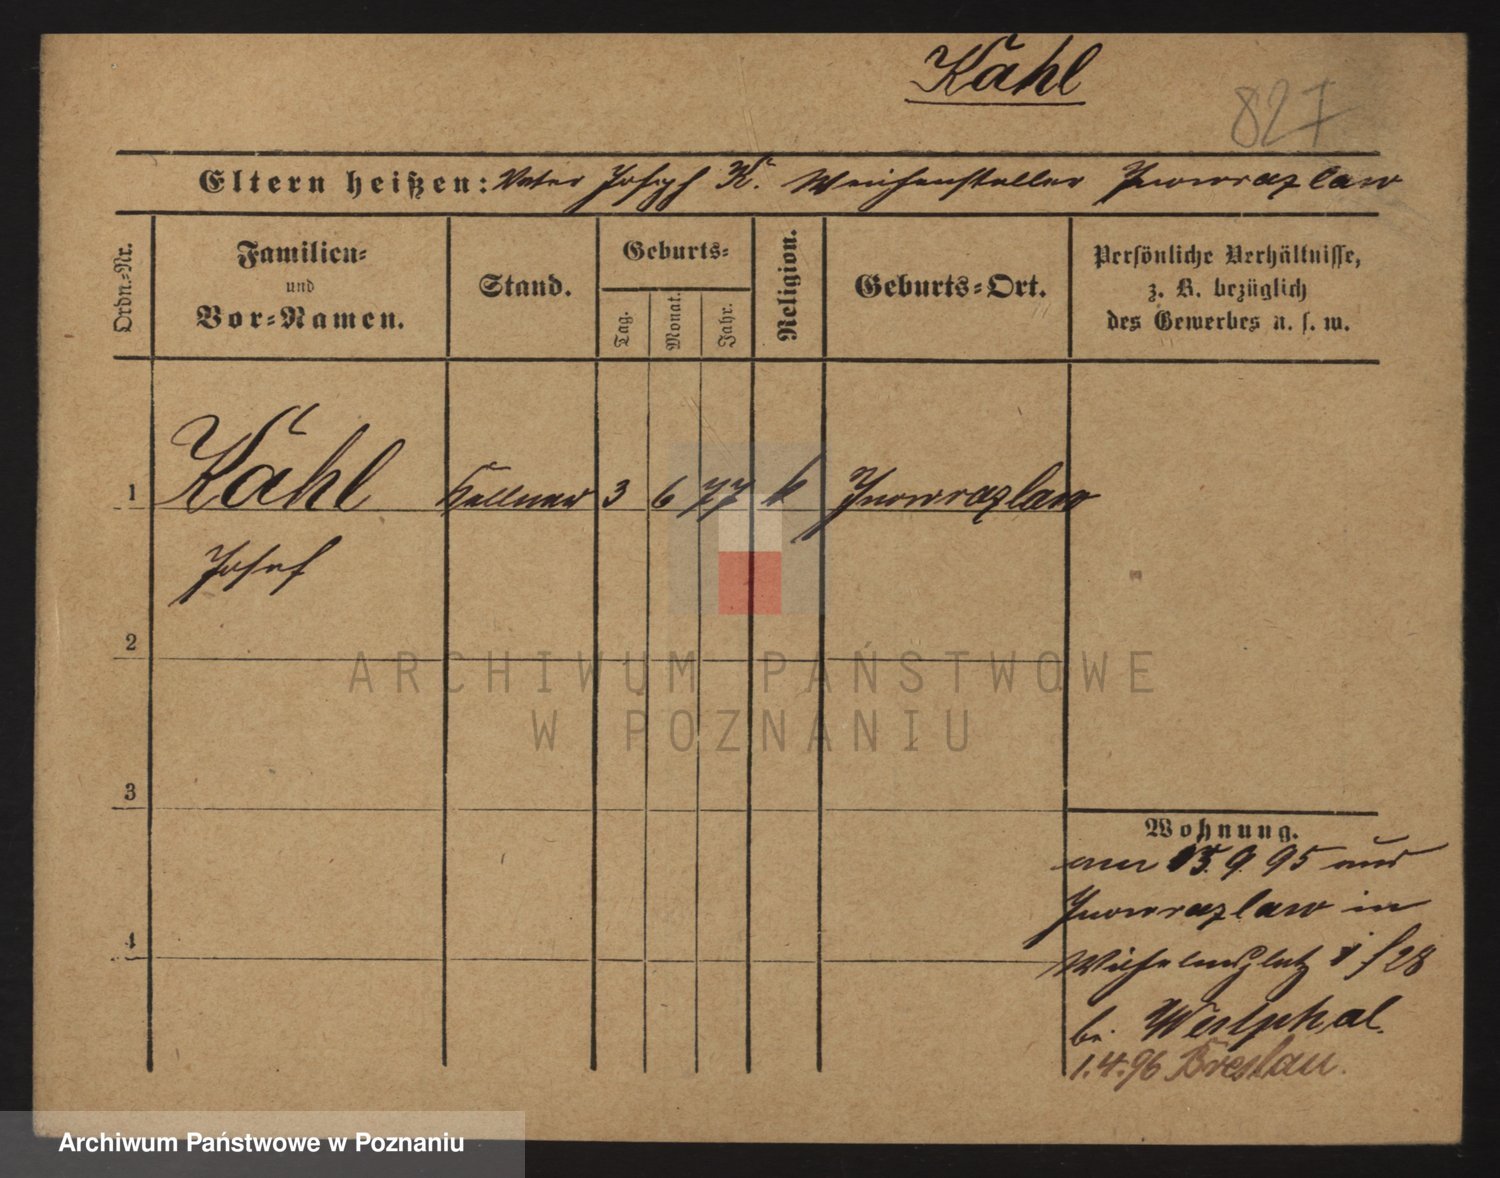 Kahl
827
Eltern heißen: Vater Joseph K. Weichensteller Inowrazlaw
Ordn.-Nr.
Familien- und Vor-Namen.
Stand.
Geburts-
Tag.
Monat.
Jahr.
Religion.
Geburts-Ort.
Persönliche Verhältnisse,
z. B. bezüglich
des Gewerbes u. s. w.
1 Kahl Kellner 3 6 77 k Inowrazlaw
Josef
2
3
4
ARCHIWUM PAŃSTWOWE
W POZNANIU
Wohnung.
am 9. 95 aus
Inowrazlaw in
Wilhelmsplatz 28
bei Westphal.
1.4.96 Breslau.
Archiwum Państwowe w Poznaniu